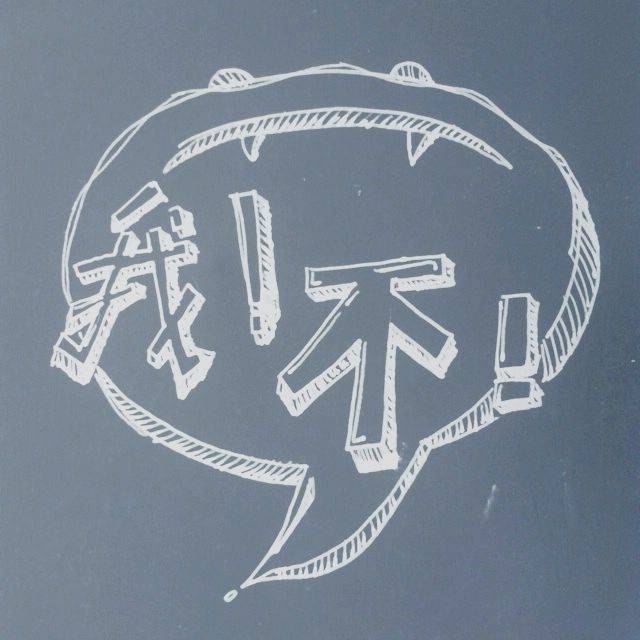 我!不!